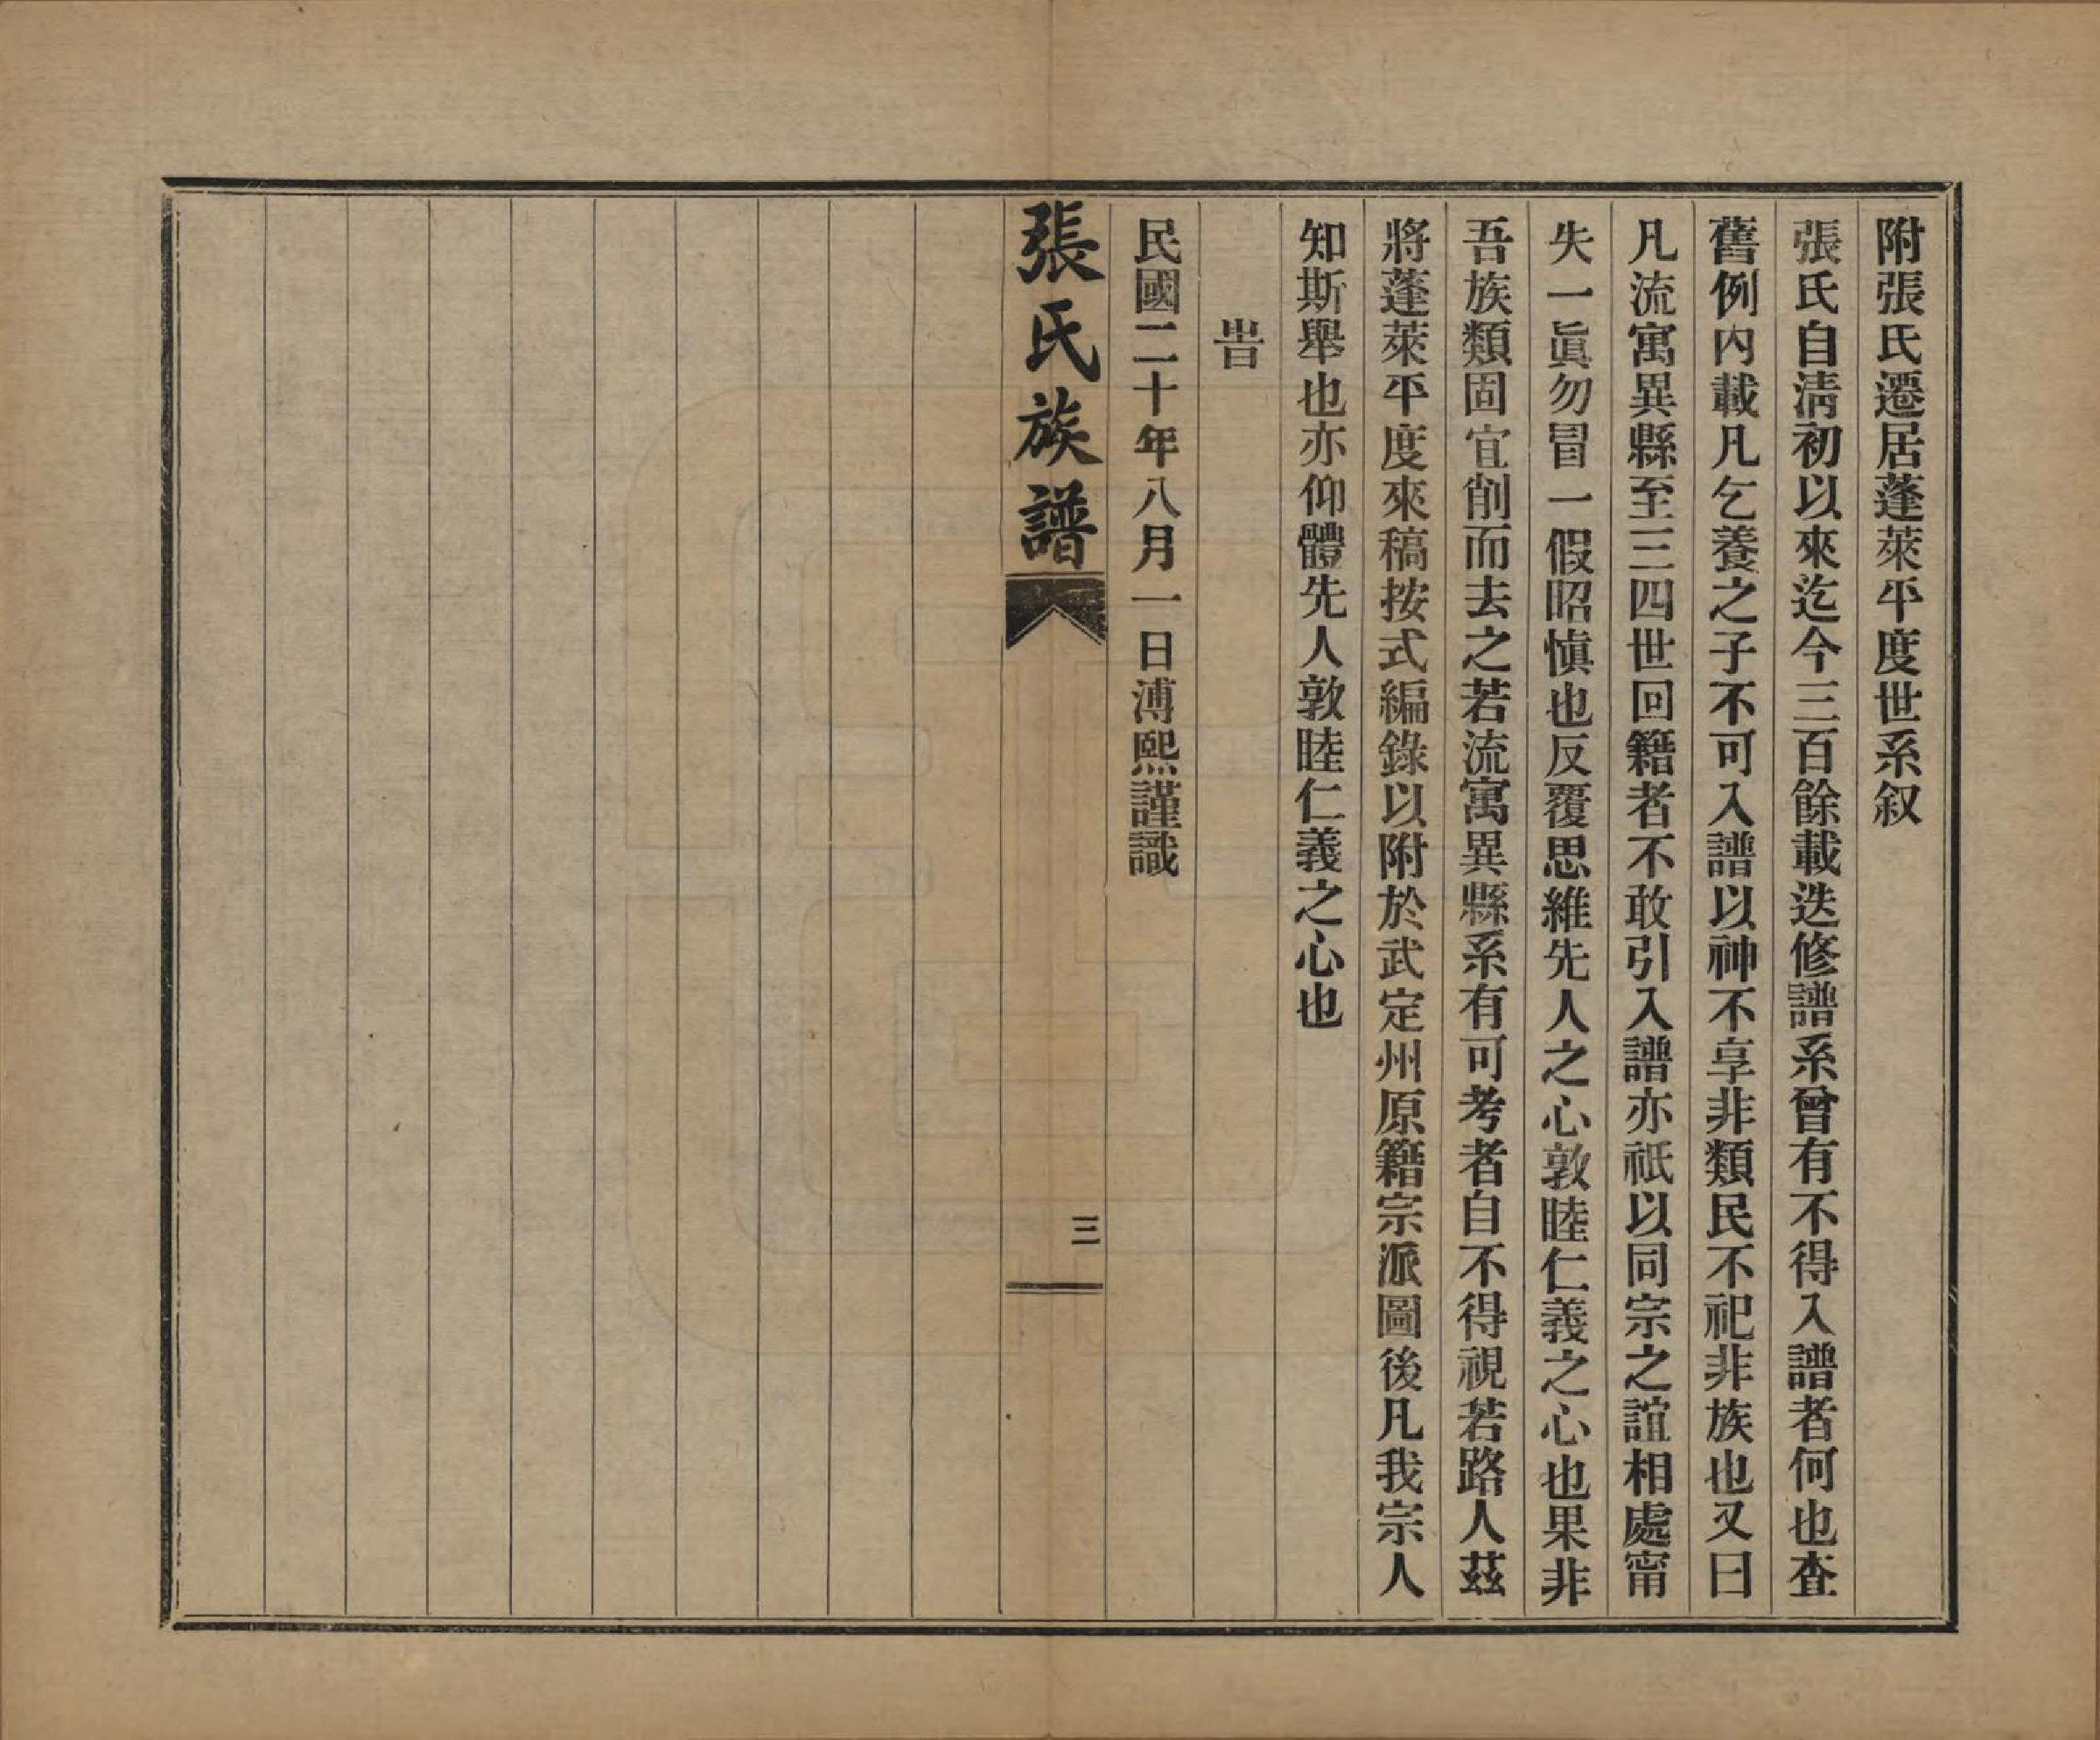 附張氏遷居蓬萊平度世系叙
張氏自淸初以來迄今三百餘載迭修譜系曾有不得入譜者何也査
舊例內載凡乞養之子不可入譜以神不享非類民不祀非族也又曰
凡流寓異縣至三四世回籍者不敢引入譜亦祇以同宗之誼相處甯
失一眞勿冒一假昭愼也反覆思維先人之心敦睦仁義之心也果非
吾族類固宜削而去之若流寓異縣系有可考者自不得視若路人茲
將蓬萊平度來稿按式編錄以附於武定州原籍宗派圖後凡我宗人
知斯舉也亦仰體先人敦睦仁義之心也
旹
民國二十年八月一日溥熙謹識
張氏族譜
三